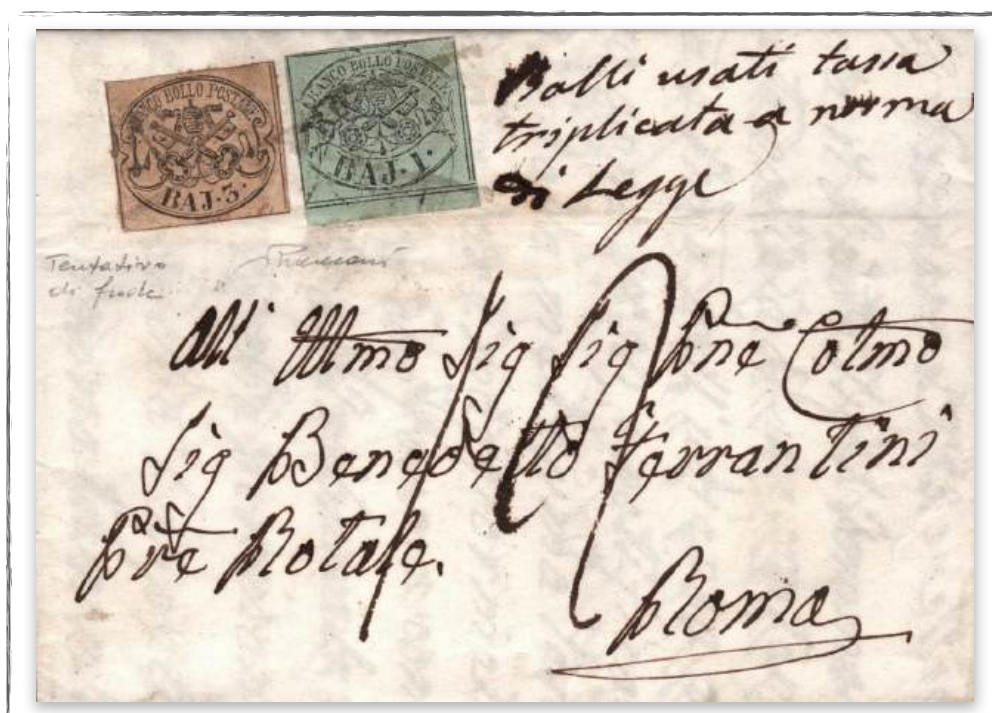 FRANCO BOLLO POSTALE
BAJ. 3.
FRANCO BOLLO POSTALE
BAJ. 1.
Bolli usati tassa
triplicata a norma
di Legge
Tentativo
di frode
All' Illmo Sig Sig Pne Colmo
Sig Benedetto Ferrantini
Pre Rotale.
Roma
12